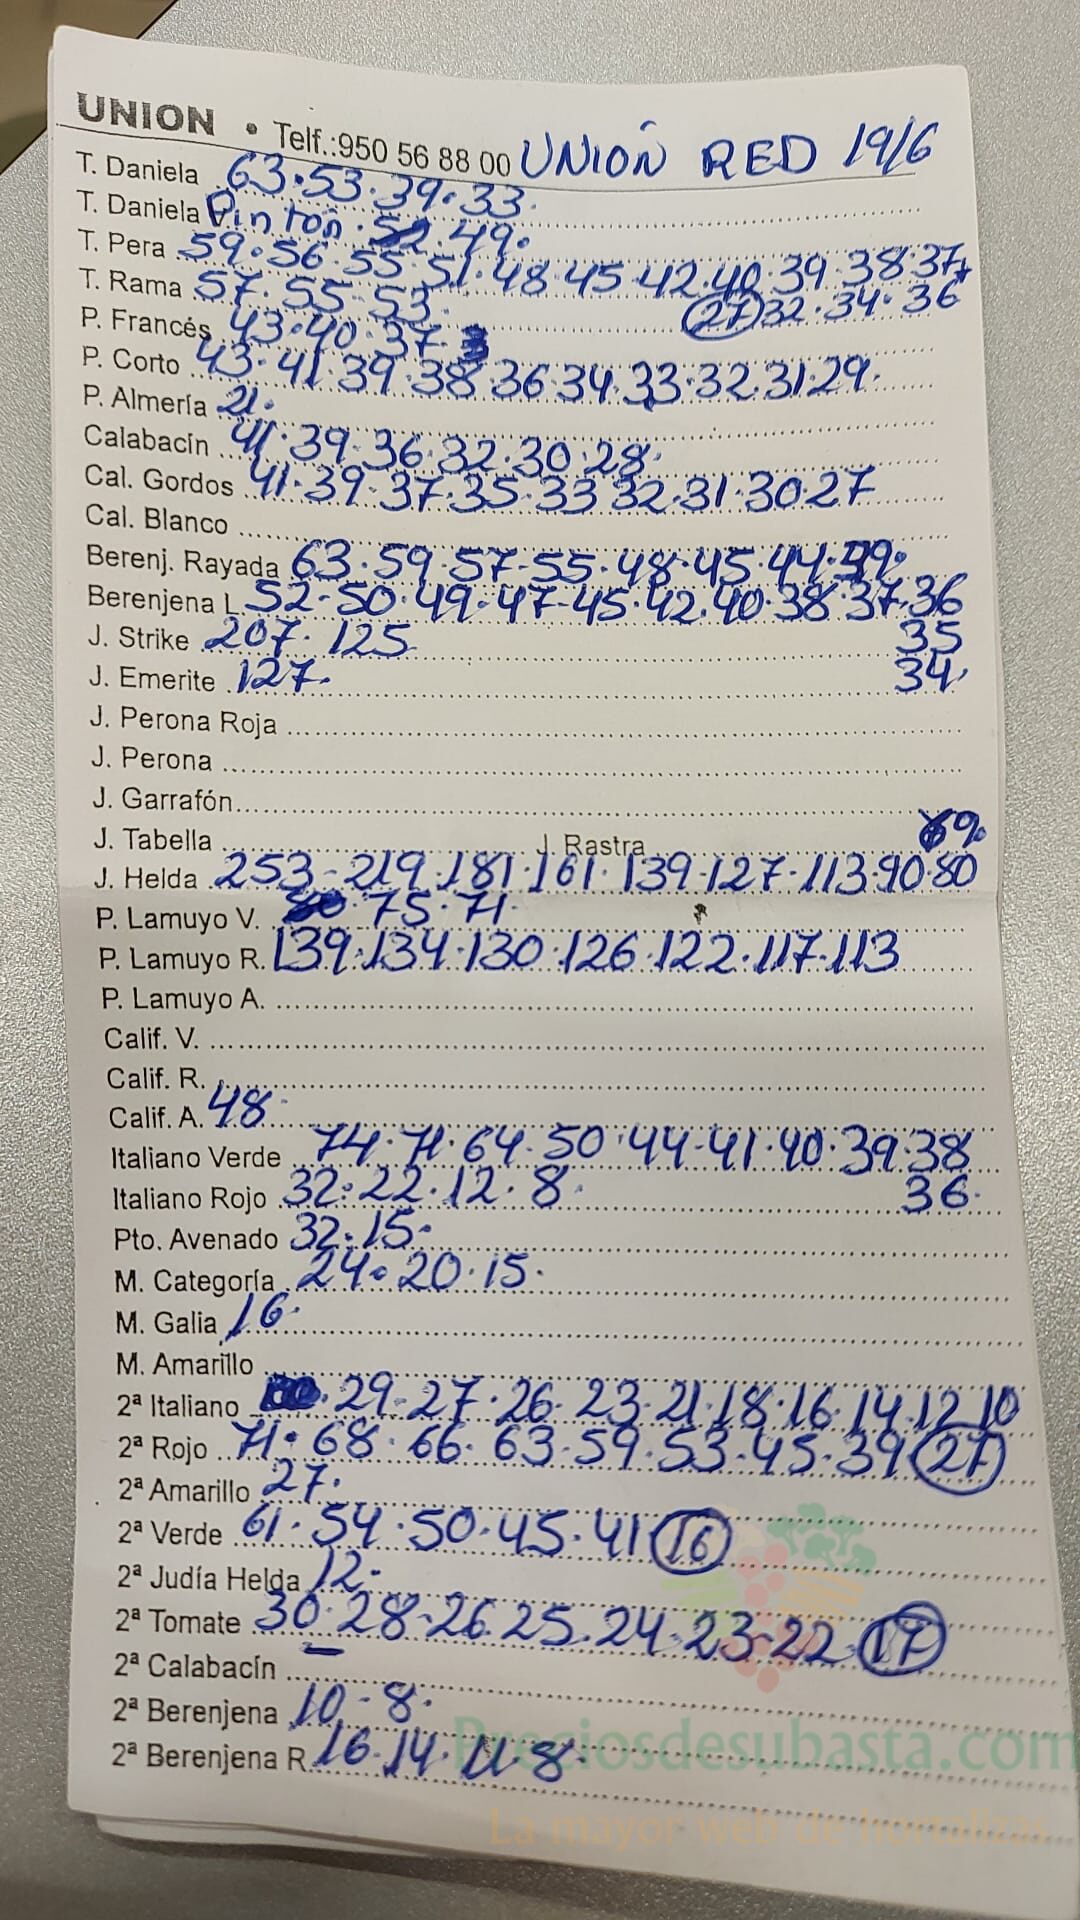 UNION • Telf.:950 56 88 00 UNIÓN RED 19/6
T. Daniela 63·53·39·33·
T. Daniela Pinton · 49·
T. Pera 59·56·55·51·48·45·42·40·39·38·37
T. Rama 57·55·53 (27) 32·34·36
P. Francés 43·40·37
P. Corto 43·41·39·38·36·34·33·32·31·29·
P. Almería 21·
Calabacín 41·39·36·32·30·28·
Cal. Gordos 41·39·37·35·33·32·31·30·27
Cal. Blanco
Berenj. Rayada 63·59·57·55·48·45·44·
Berenjena L 52·50·49·47·45·42·40·38·37·36
J. Strike 207·125 35
J. Emerite 127· 34·
J. Perona Roja
J. Perona
J. Garrafón
J. Tabella J. Rastra
J. Helda 253-219·181·161·139·127·113·90·80
P. Lamuyo V. 75·71·
P. Lamuyo R. 139·134·130·126·122·117·113
P. Lamuyo A.
Calif. V.
Calif. R.
Calif. A. 48·
Italiano Verde 74·71·64·50·44·41·40·39·38
Italiano Rojo 32·22·12·8· 36·
Pto. Avenado 32·15·
M. Categoría 24·20·15·
M. Galia 16·
M. Amarillo
2ª Italiano 29·27·26·23·21·18·16·14·12·10
2ª Rojo 71·68·66·63·59·53·45·39 (27)
2ª Amarillo 27·
2ª Verde 61·54·50·45·41 (16)
2ª Judía Helda 12·
2ª Tomate 30·28·26·25·24·23·22·(17)
2ª Calabacín
2ª Berenjena 10-8·
2ª Berenjena R. 16·14·11·8·
Preciosdesubasta.com
La mayor web de hortalizas